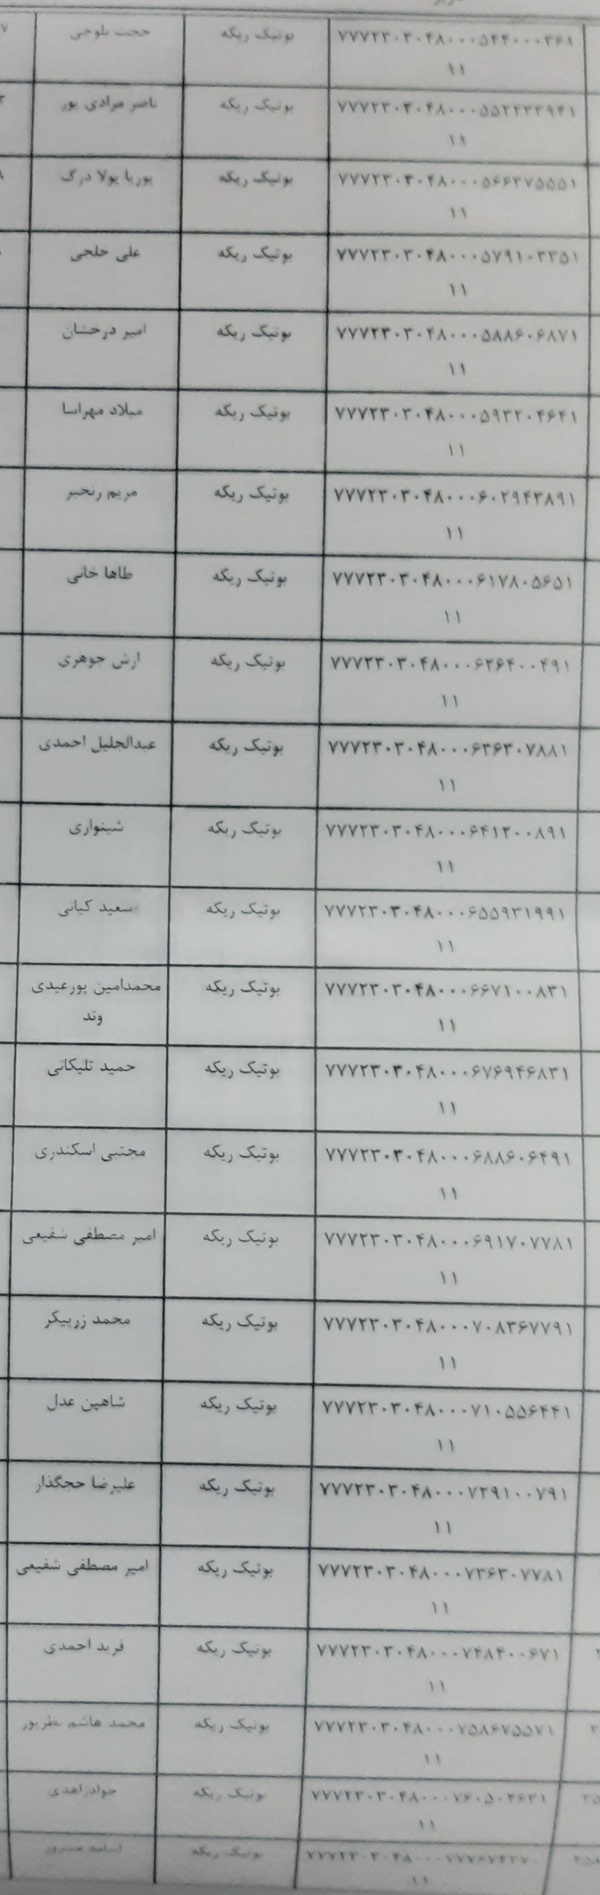 حجت بلوچی بوتیک ریکه ۷۷۷۲۳۰۳۰۴۸۰۰۰۵۴۴۰۰۰۳۶۱
۱۱
ناصر مرادی پور بوتیک ریکه ۷۷۷۲۳۰۳۰۴۸۰۰۰۵۵۲۳۳۳۹۴۱
۱۱
پوریا پولا درگ بوتیک ریکه ۷۷۷۲۳۰۳۰۴۸۰۰۰۵۶۶۳۷۵۵۵۱
۱۱
علی خلجی بوتیک ریکه ۷۷۷۲۳۰۳۰۴۸۰۰۰۵۷۹۱۰۳۳۵۱
۱۱
امیر درخشان بوتیک ریکه ۷۷۷۲۳۰۳۰۴۸۰۰۰۵۸۸۶۰۶۸۷۱
۱۱
میلاد مهراسا بوتیک ریکه ۷۷۷۲۳۰۳۰۴۸۰۰۰۵۹۳۲۰۴۶۴۱
۱۱
مریم رنجبر بوتیک ریکه ۷۷۷۲۳۰۳۰۴۸۰۰۰۶۰۲۹۴۳۸۹۱
۱۱
طاها خانی بوتیک ریکه ۷۷۷۲۳۰۳۰۴۸۰۰۰۶۱۷۸۰۵۶۵۱
۱۱
ارش جوهری بوتیک ریکه ۷۷۷۲۳۰۳۰۴۸۰۰۰۶۲۶۴۰۰۴۹۱
۱۱
عبدالجلیل احمدی بوتیک ریکه ۷۷۷۲۳۰۳۰۴۸۰۰۰۶۳۶۳۰۷۸۸۱
۱۱
شینواری بوتیک ریکه ۷۷۷۲۳۰۳۰۴۸۰۰۰۶۴۱۲۰۰۸۹۱
۱۱
سعید کیانی بوتیک ریکه ۷۷۷۲۳۰۳۰۴۸۰۰۰۶۵۵۹۳۱۹۹۱
۱۱
محمدامین پورعیدی بوتیک ریکه ۷۷۷۲۳۰۳۰۴۸۰۰۰۶۶۷۱۰۰۸۳۱
وند ۱۱
حمید تلیکانی بوتیک ریکه ۷۷۷۲۳۰۳۰۴۸۰۰۰۶۷۶۹۴۶۸۳۱
۱۱
مجتبی اسکندری بوتیک ریکه ۷۷۷۲۳۰۳۰۴۸۰۰۰۶۸۸۶۰۶۴۹۱
۱۱
امیر مصطفی شفیعی بوتیک ریکه ۷۷۷۲۳۰۳۰۴۸۰۰۰۶۹۱۷۰۷۷۸۱
۱۱
محمد زرپیکر بوتیک ریکه ۷۷۷۲۳۰۳۰۴۸۰۰۰۷۰۸۳۶۷۷۹۱
۱۱
شاهین عدل بوتیک ریکه ۷۷۷۲۳۰۳۰۴۸۰۰۰۷۱۰۵۵۶۴۴۱
۱۱
علیرضا حجگذار بوتیک ریکه ۷۷۷۲۳۰۳۰۴۸۰۰۰۷۲۹۱۰۰۷۹۱
۱۱
امیر مصطفی شفیعی بوتیک ریکه ۷۷۷۲۳۰۳۰۴۸۰۰۰۷۳۶۳۰۷۷۸۱
۱۱
فرید احمدی بوتیک ریکه ۷۷۷۲۳۰۳۰۴۸۰۰۰۷۴۸۴۰۰۶۷۱
۱۱
محمد هاشم نظرپور بوتیک ریکه ۷۷۷۲۳۰۳۰۴۸۰۰۰۷۵۸۶۷۵۵۷۱
۱۱
جوادزاهدی بوتیک ریکه ۷۷۷۲۳۰۳۰۴۸۰۰۰۷۶۰۵۰۴۶۳۱
۱۱
بوتیک ریکه
۱۱